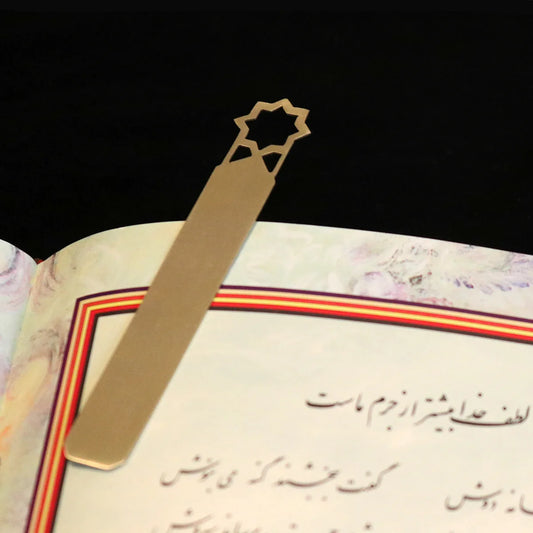 لطف خدا بیشتر از جرم ماست
انه دوش گفت ببخشند گنه می بنوش